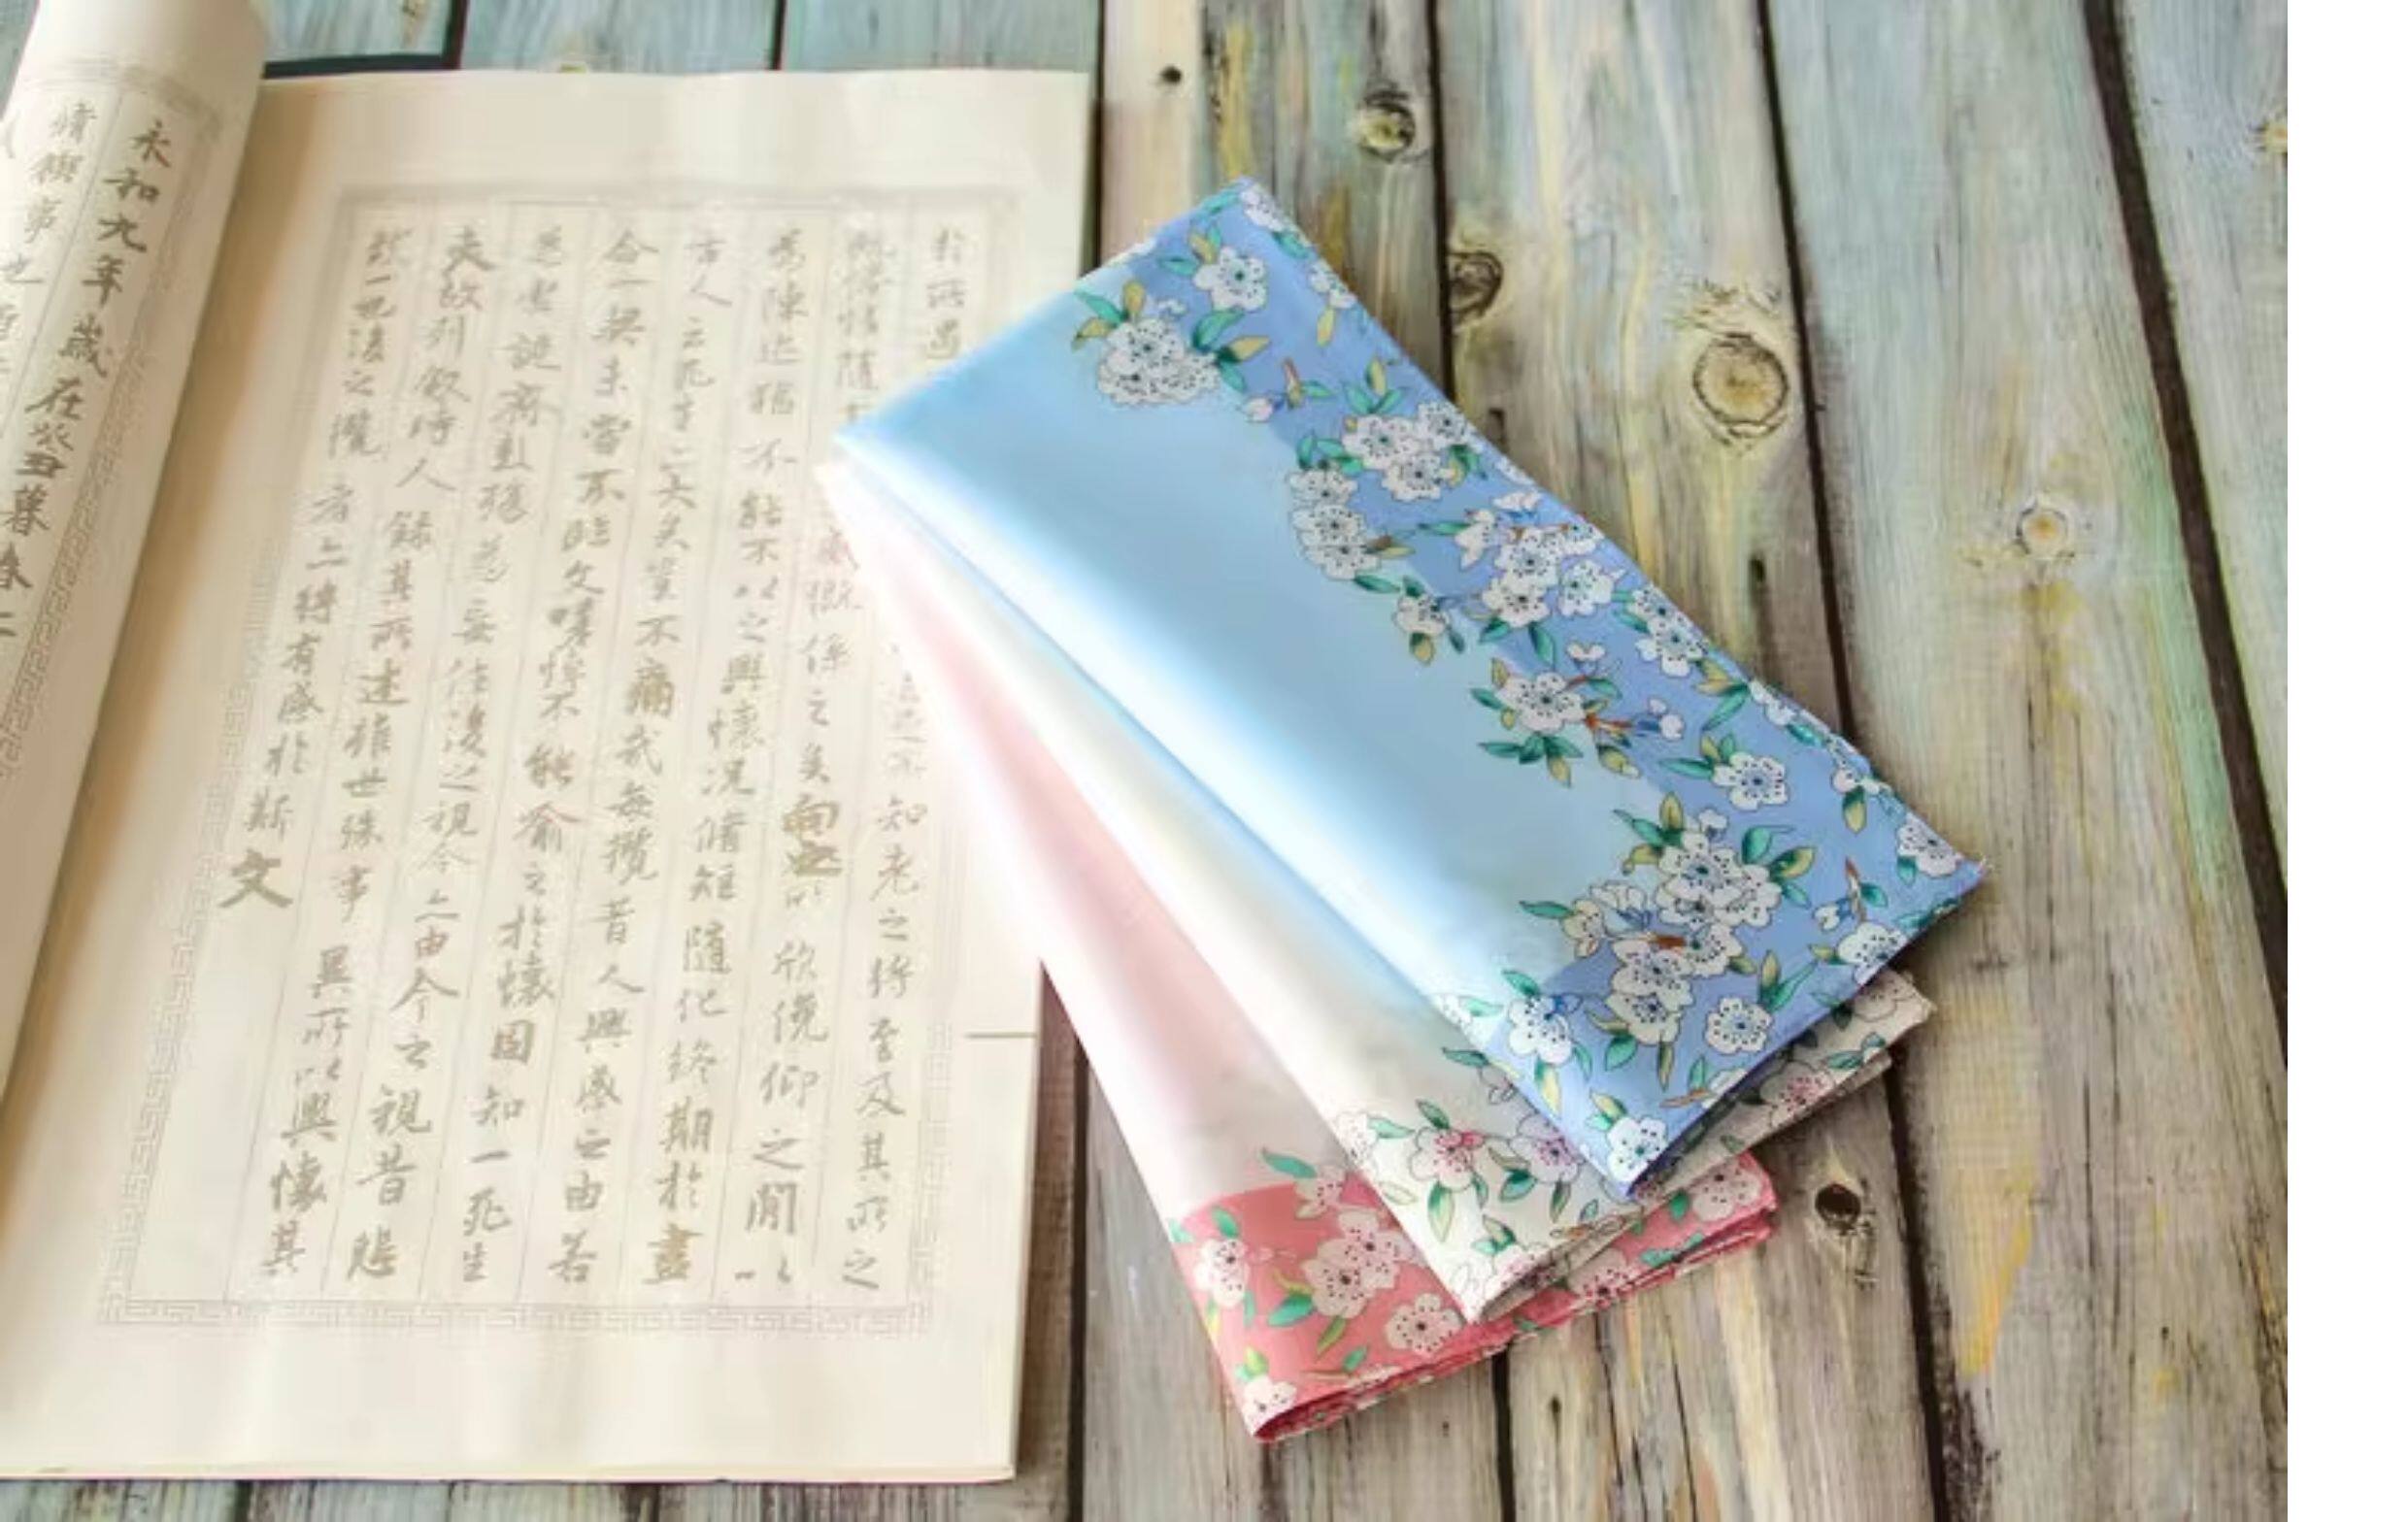 永和九年歲在癸丑暮春
脩禊事也
於所遇 不知老之將至及其所之
既惓情隨 感慨係之矣向之所欣俛仰之閒以
為陳迹猶不能不以之興懷況脩短隨化終期於盡
古人云死生亦大矣豈不痛哉每攬昔人興感之由若
合一契未嘗不臨文嗟悼不能喻之於懷固知一死生
為虛誕齊彭殤為妄作後之視今亦由今之視昔悲
夫故列敘時人錄其所述雖世殊事異所以興懷其
致一也後之攬者亦將有感於斯文